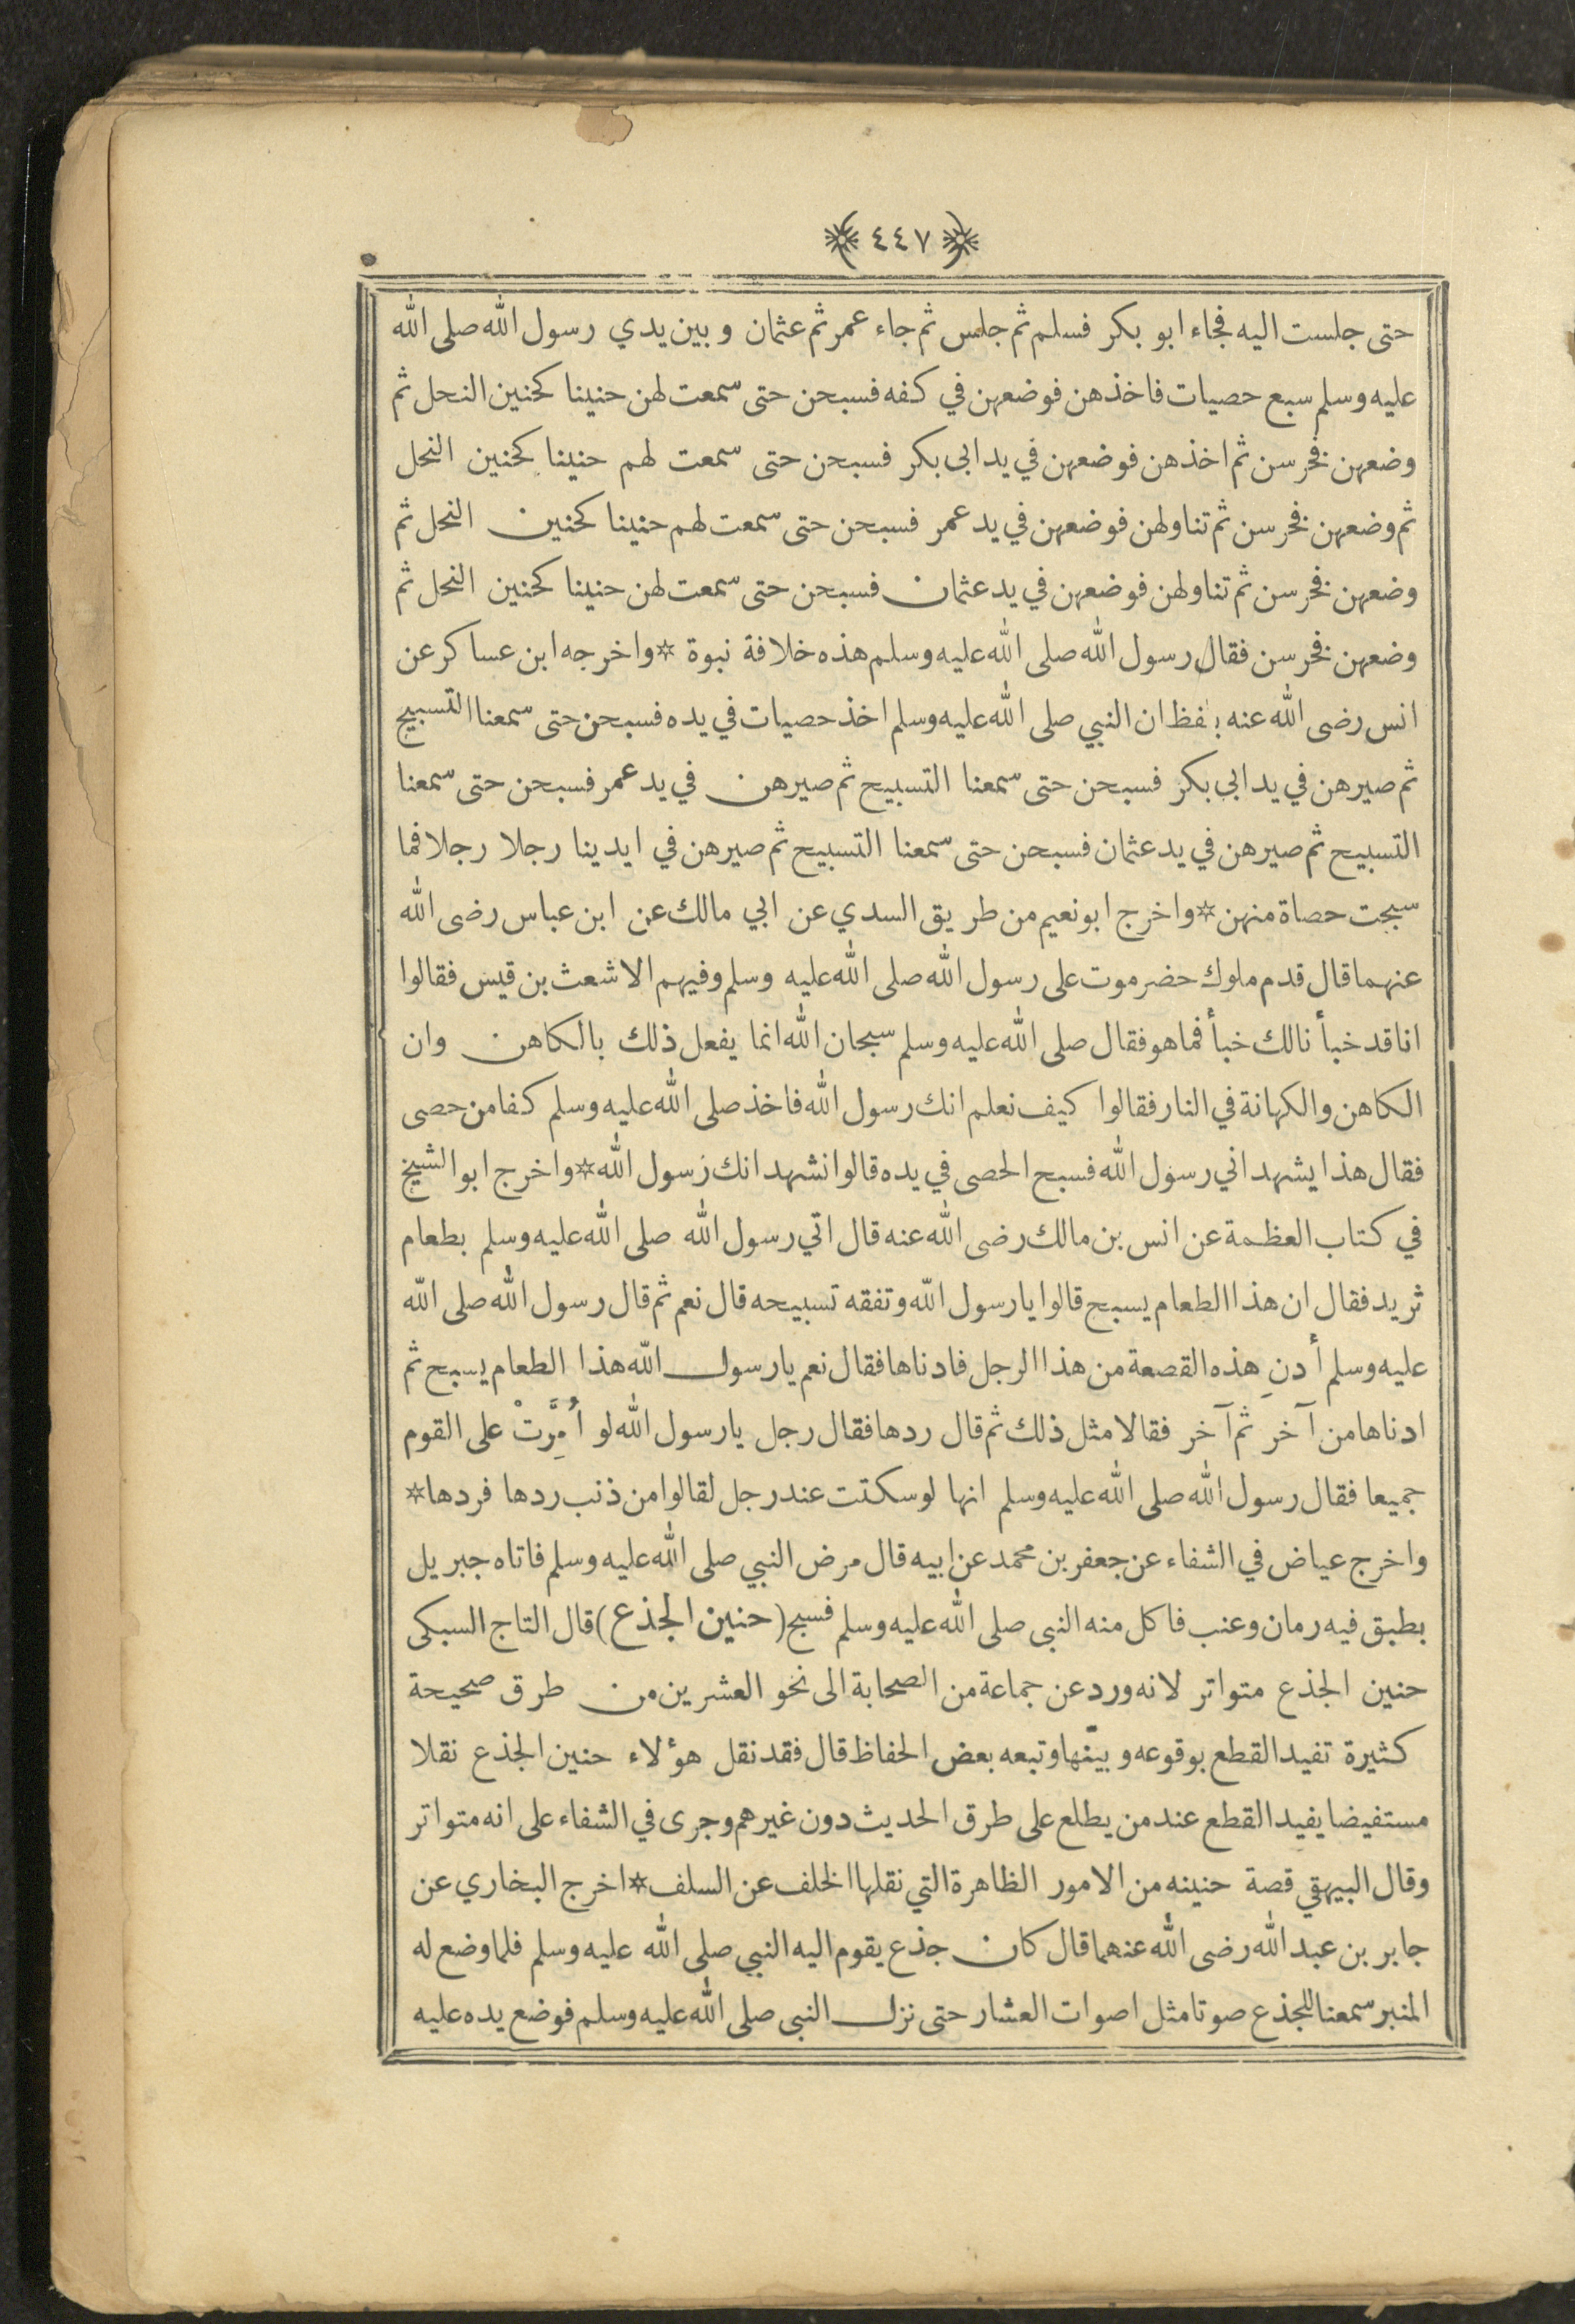 ﴿ ٤٤٧ ﴾
حتى جلست اليه فجاء ابو بكر فسلم ثم جلس ثم جاء عمر ثم عثمان و بين يدي رسول الله صلى الله
عليه وسلم سبع حصيات فاخذهن فوضعهن في كفه فسبحن حتى سمعت لهن حنينا كحنين النحل ثم
وضعهن فخرسن ثم اخذهن فوضعهن في يد ابى بكر فسبحن حتى سمعت لهم حنينا كحنين النحل
ثم وضعهن فخرسن ثم تناولهن فوضعهن في يد عمر فسبحن حتى سمعت لهم حنينا كحنين النحل ثم
وضعهن فخرسن ثم تناولهن فوضعهن في يد عثمان فسبحن حتى سمعت لهن حنينا كحنين النحل ثم
وضعهن فخرسن فقال رسول الله صلى الله عليه وسلم هذه خلافة نبوة * واخرجه ابن عساكر عن
انس رضى الله عنه بلفظ ان النبي صلى الله عليه وسلم اخذ حصيات في يده فسبحن حتى سمعنا التسبيح
ثم صيرهن في يد ابى بكر فسبحن حتى سمعنا التسبيح ثم صيرهن في يد عمر فسبحن حتى سمعنا
التسبيح ثم صيرهن في يد عثمان فسبحن حتى سمعنا التسبيح ثم صيرهن في ايدينا رجلا رجلا فما
سبحت حصاة منهن * واخرج ابو نعيم من طريق السدي عن ابي مالك عن ابن عباس رضى الله
عنهما قال قدم ملوك حضرموت على رسول الله صلى الله عليه وسلم وفيهم الاشعث بن قيس فقالوا
انا قد خبأنا لك خبأ فما هو فقال صلى الله عليه وسلم سبحان الله انما يفعل ذلك بالكاهن وان
الكاهن والكهانة في النار فقالوا كيف نعلم انك رسول الله فاخذ صلى الله عليه وسلم كفا من حصى
فقال هذا يشهد اني رسول الله فسبح الحصى في يده قالوا نشهد انك رسول الله * واخرج ابو الشيخ
في كتاب العظمة عن انس بن مالك رضى الله عنه قال اتي رسول الله صلى الله عليه وسلم بطعام
ثريد فقال ان هذا الطعام يسبح قالوا يا رسول الله وتفقه تسبيحه قال نعم ثم قال رسول الله صلى الله
عليه وسلم أدنِ هذه القصعة من هذا الرجل فادناها فقال نعم يا رسول الله هذا الطعام يسبح ثم
ادناها من آخر ثم آخر فقالا مثل ذلك ثم قال ردها فقال رجل يا رسول الله لو أُمِرَّتْ على القوم
جميعا فقال رسول الله صلى الله عليه وسلم انها لو سكتت عند رجل لقالوا من ذنب ردها فردها *
واخرج عياض في الشفاء عن جعفر بن محمد عن ابيه قال مرض النبي صلى الله عليه وسلم فاتاه جبريل
بطبق فيه رمان وعنب فاكل منه النبى صلى الله عليه وسلم فسبح (حنين الجذع) قال التاج السبكى
حنين الجذع متواتر لانه ورد عن جماعة من الصحابة الى نحو العشرين من طرق صحيحة
كثيرة تفيد القطع بوقوعه و بيّنها وتبعه بعض الحفاظ قال فقد نقل هؤلاء حنين الجذع نقلا
مستفيضا يفيد القطع عند من يطلع على طرق الحديث دون غيرهم وجرى في الشفاء على انه متواتر
وقال البيهقي قصة حنينه من الامور الظاهرة التي نقلها الخلف عن السلف * اخرج البخاري عن
جابر بن عبد الله رضى الله عنهما قال كان جذع يقوم اليه النبي صلى الله عليه وسلم فلما وضع له
المنبر سمعنا للجذع صوتا مثل اصوات العشار حتى نزل النبى صلى الله عليه وسلم فوضع يده عليه